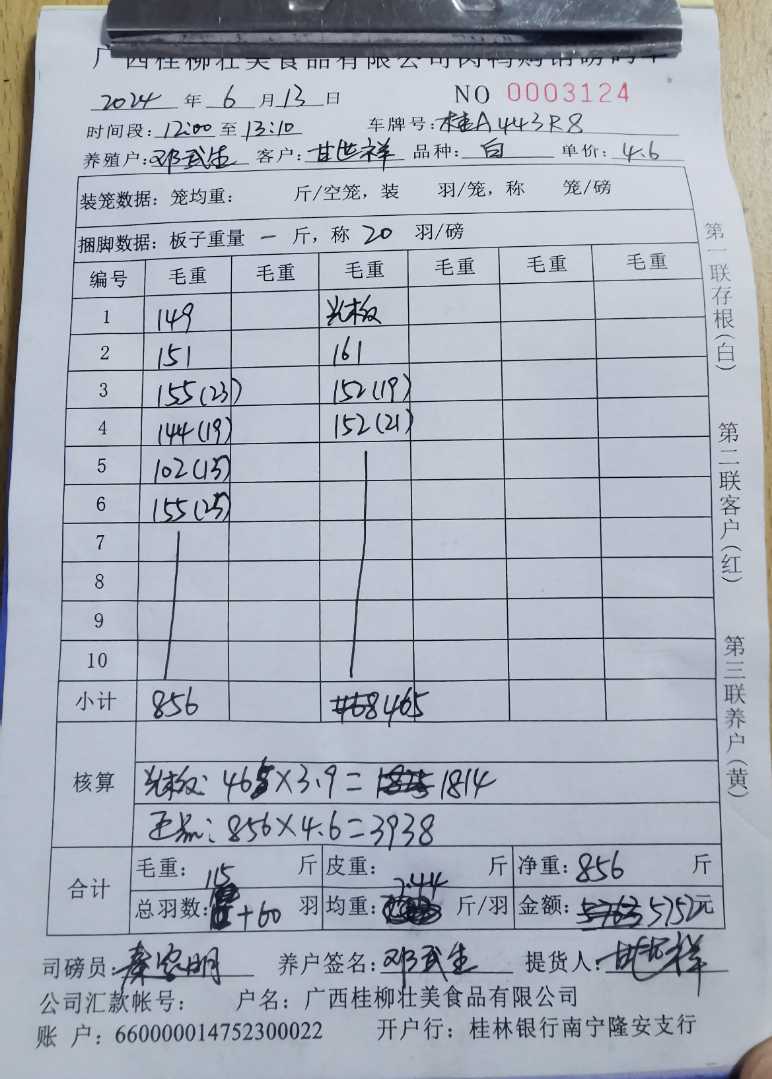 广西桂柳壮美食品有限公司肉鸭购销磅码单
2024 年 6 月 13 日 NO 0003124
时间段: 12:00 至 13:10 车牌号: 桂A443R8
养殖户: 邓武生 客户: 甘世祥 品种: 白 单价: 4.6
装笼数据: 笼均重: 斤/空笼, 装 羽/笼, 称 笼/磅
捆脚数据: 板子重量 一 斤, 称 20 羽/磅
编号 毛重 毛重 毛重 毛重 毛重 毛重
1 149
2 151 161
3 155(23) 152(19)
4 144(19) 152(21)
5 102(15)
6 155(25)
7
8
9
10
小计 856 465
核算
465×3.9=1814
856×4.6=3938
合计 毛重: 斤 皮重: 斤 净重: 856 斤
总羽数: 115+60 羽 均重: 7.44 斤/羽 金额: 5752元
司磅员: 养户签名: 邓武生 提货人: 甘世祥
公司汇款帐号: 户名: 广西桂柳壮美食品有限公司
账 户: 660000014752300022 开户行: 桂林银行南宁隆安支行
第一联存根(白) 第二联客户(红) 第三联养户(黄)